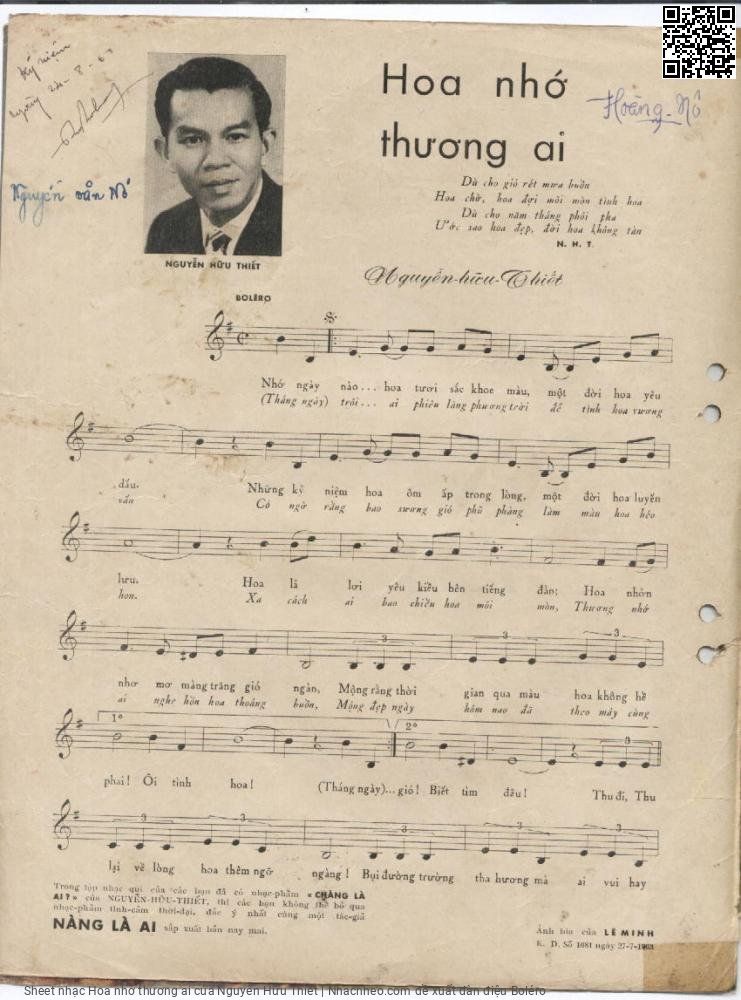 Kỷ niệm
ngày 24-8-63
Nguyễn văn Nô
Hoàng-Nô
Hoa nhớ
thương ai
Dù cho gió rét mưa buồn
Hoa chờ, hoa đợi mỏi mòn tình hoa
Dù cho năm tháng phôi pha
Ước sao hoa đẹp, đời hoa không tàn
N. H. T.
NGUYỄN HỮU THIẾT
Nguyễn-hữu-Thiết
BOLÉRO
Nhớ ngày nào... hoa tươi sắc khoe màu, một đời hoa yêu
(Tháng ngày) trôi... ai phiêu lãng phương trời để tình hoa vương
dấu. Những kỷ niệm hoa ôm ấp trong lòng, một đời hoa luyến
vấn Có ngờ rằng bao sương gió phũ phàng làm màu hoa héo
lưu. Hoa lả lơi yêu kiều bên tiếng đàn; Hoa nhởn
hon. Xa cách ai bao chiều hoa mỏi mòn, Thương nhớ
3 3 3
nhơ mơ màng trăng gió ngàn, Mộng rằng thời gian qua màu hoa không hề
ai nghe hồn hoa thoáng buồn, Mộng đẹp ngày hôm nao đã theo mây cùng
1° 2°
3 3
phai! Ôi tình hoa! (Tháng ngày)... gió! Biết tìm đâu! Thu đi, Thu
3 3 3 3
lại về lòng hoa thêm ngỡ ngàng! Bụi đường trường tha hương mà ai vui hay
Trong tập nhạc qui của các bạn đã có nhạc-phẩm «CHÀNG LÀ
AI?» của NGUYỄN-HỮU-THIẾT, thì các bạn không thể bỏ qua
nhạc-phẩm tình-cảm thời-đại, đắc ý nhất cùng một tác-giả
NÀNG LÀ AI sắp xuất bản nay mai.
Ảnh bìa của LÊ MINH
K. D. Số 1681 ngày 27-7-1963
Sheet nhạc Hoa nhớ thương ai của Nguyễn Hữu Thiết | Nhacnheo.com đề xuất dàn điệu Boléro